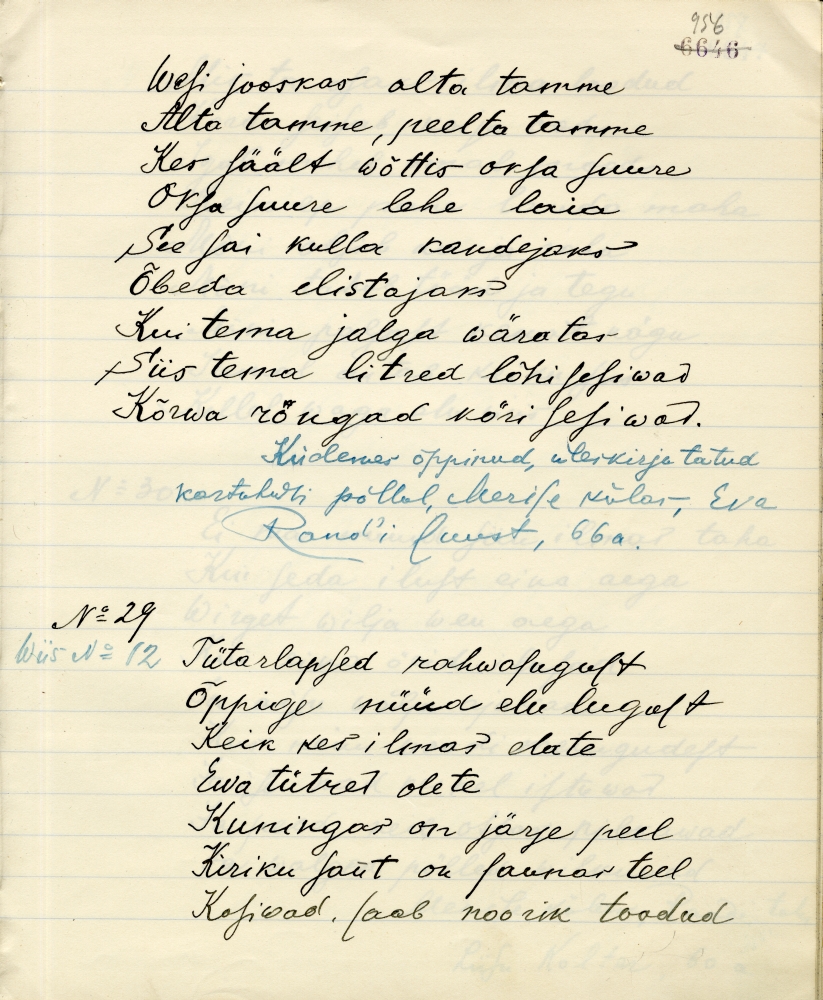 956
6646
Wesi jooskas alta tamme
Alta tamme, peelta tamme
Kes säält wõttis oksa suure
Oksa suure lehe laia
See sai kulla kandejaks
Õbeda elistajaks
Kui tema jalga wäratas
Siis tema litred lõhisesiwad
Kõrwa rõngad kõrisesiwad.
õppinud, üleskirjutatud
põllul, Merise külas, Eva
Rand'i suust, 66 a.
№ 29
Wiis № 12
Tütarlapsed rahwasugust
Õppige nüüd elu lugust
Keik kes ilmas elate
Ewa tütred olete
Kuningas on järje peel
Kiriku sant on saunas teel
Kosiwad, saab noorik toodud